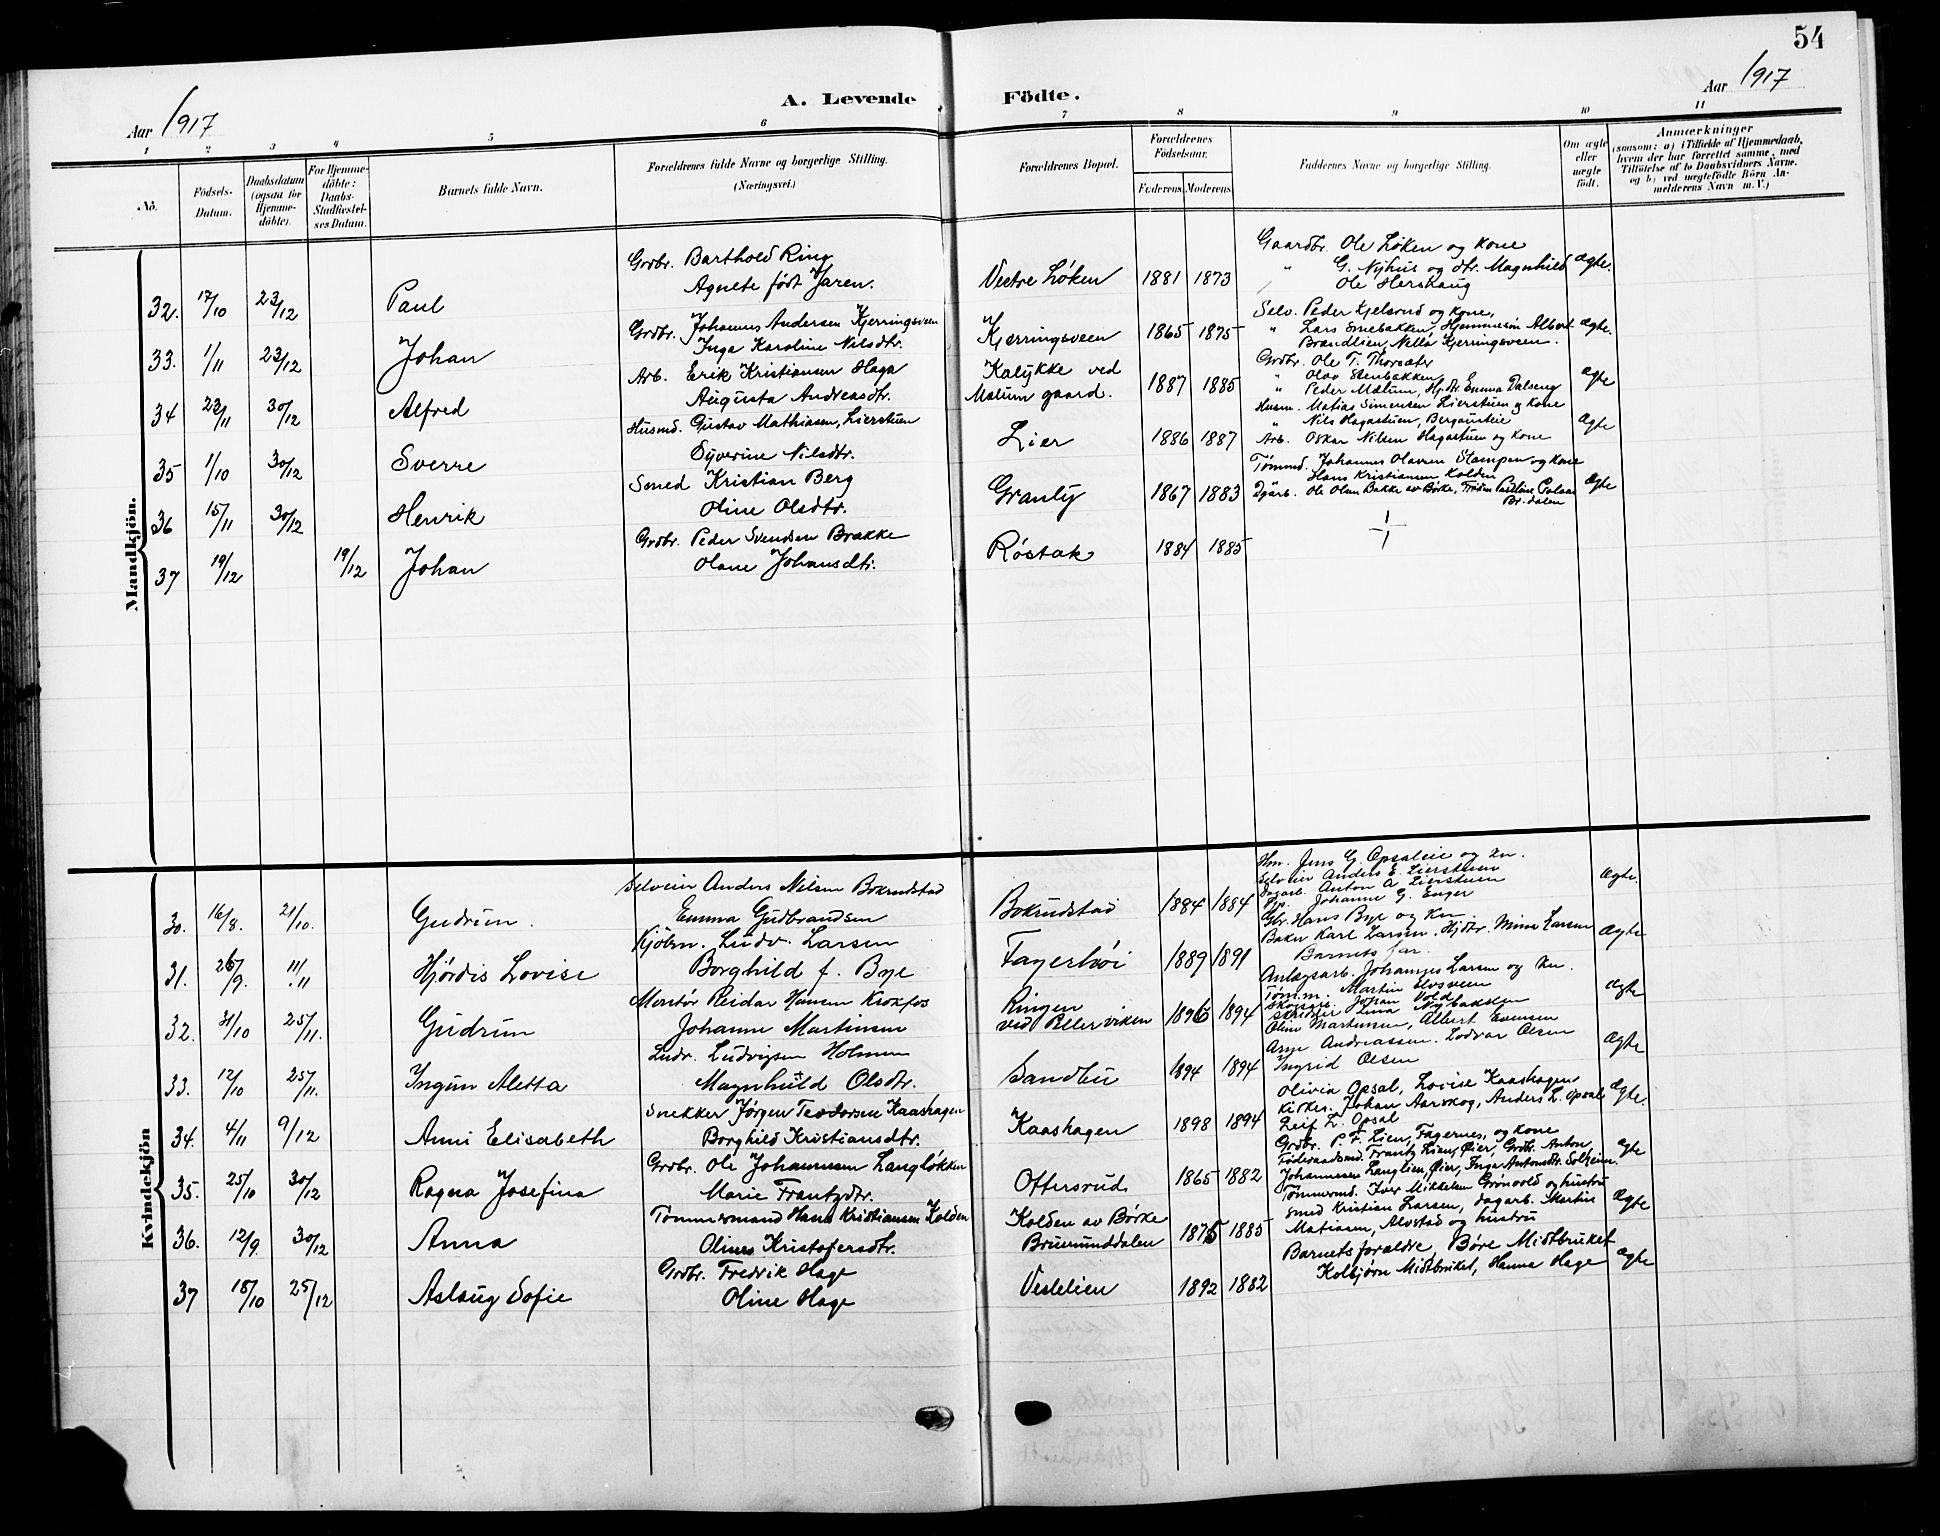 54
Aar 1917
A. Levende Födte.
Aar 1917
1 2 3 4 5 6 7 8 9 10 11
No.
Födsels-Datum.
Daabsdatum (ogsaa for Hjemme-döbte).
For Hjemme-döbte: Daabs-Stadfæstel-ses Datum.
Barnets fulde Navn.
Forældrenes fulde Navne og borgerlige Stilling.
(Næringsvei.)
Forældrenes Bopæl.
Forældrenes Födselsaar.
Faderens. Moderens.
Faddernes Navne og borgerlige Stilling.
Om ægte eller uægte födt.
Anmærkninger
(saasom: a) i Tilfælde af Hjemmedaab,
hvem der har forrettet samme, med
Tilföielse af to Daabsvidners Navne.
og b) ved uægtefödte Börn An-
melderens Navn m. V.)
Mandkjön.
32. 17/10 23/12 Paul
Grdbr. Barthold Ring
Agnete født Jaren.
Vestre Løken 1881 1873
Gaardbr. Ole Løken og kone
" G. Nyhus og dtr. Magnhild
Ole Hershaug
Ægte.
33. 1/11 23/12 Johan
Grdbr. Johannes Andersen Kjerringsveen
Inga Karoline Nilsdtr.
Kjerringsveen 1865 1875
Selv. Peder Kjelsrud og kone,
" Lars Smebakken, Hjemmesøn Albert
Brandlien, Nella Kjerringsveen.
Ægte.
34 23/11 30/12 Alfred
Arb. Erik Kristiansen Haga
Augusta Andreasdtr.
Kalykke ved
Mælum gaard. 1887 1885
Grdbr. Ole T. Thorsæter
" Olav Stenbakken
" Peder Mælum, Hj. dtr. Emma Dalseng
Ægte
35 1/10 30/12 Sverre
Husmd. Gustav Mathiasen, Lierstuen
Syverine Nilsdtr.
Lier 1886 1887
Husm. Matias Simensen Lierstuen og kone
" Nils Hagastuen, Bergunstie
Arb. Oskar Nilsen Hagastuen og kone
Ægte
36 15/11 30/12 Henrik
Smed Kristian Berg
Oline Olsdtr.
Granly 1867 1883
Tømmd. Johannes Olavsen Stampen og kone
Hans Kristiansen Kolden
Dgarb. Ole Olsen Bakke av Børke, Frøken Pauline
Br. dalen
Ægte
37 19/12 19/12 Johan
Grdbr. Peder Svendsen Brække
Olane Johansdtr.
Røstak 1884 1885
Kvindekjön
30. 16/8. 21/10. Gudrun.
Selveier Anders Nilsen Bokrudstad
Emma Gudbrandsen
Bokrudstad 1884 1884
Hm. Jens G. Opsaleie og kn.
Selveier Anders E. Lierstuen
Dagarb. Anton A. Lierstuen
Pp. Johanne G. Enger
Ægte.
31. 26/9. 11/11 Hjørdis Lovise
Kjøbm. Ludv. Larsen
Borghild f. Bye
Fagerhøi 1889 1891
Gbr. Hans Bye og kn.
Baker Karl Larsen. Hjdtr. Mina Larsen
Barnets far.
Ægte
32. 31/10 25/11. Gudrun
Montør Reidar Hansen Krokfos
Johanne Martinsen
Ringen
ved Pellerviken 1896 1894
Anlægsarb. Johannes Larsen og kn.
Tømm. Martin Mosveen
Skogsarb. Johan Vold
Skrædder Lina Nybakken
Ægte
33. 12/10 25/11. Ingun Aletta
Ludv. Ludvigsen Holmen
Magnhild Olsdtr.
Sandbu 1894 1894
Oline Martinsen, Albert Evensen
Arne Andreassen. Lodvar Olsen
Ingrid Olsen
Ægte
34. 4/11 9/12 Anni Elisabeth
Snekker Jørgen Teodorsen Kaashagen
Borghild Kristiansdtr.
Kaashagen 1898 1894
Olivia Opsal, Lovise Kaashagen
Kirkes. Johan Aarskog, Anders L. Opsal
Leif L. Opsal
Ægte.
35. 25/10 30/12 Ragna Josefina
Grdbr. Ole Johannesen Langløkken
Marie Frantzdtr.
Ottersrud 1865 1882
Grdbr. P. F. Lien, Fagernes, og kone
Føderaadsmd. Frantz Liens Øier, Grdbr. Anton
Johannesen Langlien, Øier, Inga Antonsdtr. Solheim
Ægte
36. 12/9. 30/12 Anna
Tømmermand Hans Kristiansen Kolden
Olines Kristofersdtr.
Kolden av Børke
Brumunddalen 1875 1885
Tømmermd. Iver Mikkelsen Grønvold og hustru
Smed Kristian Larsen, dagarb. Martin
Matiasen, Alvstad og hustru
Ægte
37 18/10 25/12 Aslaug Sofie
Grdbr. Fredrik Hage
Oline Hage
Veslelien 1892 1882
Barnets foraldre, Børe Midtbruket
Kolbjørn Midtbruket, Hanna Hage
Ægte